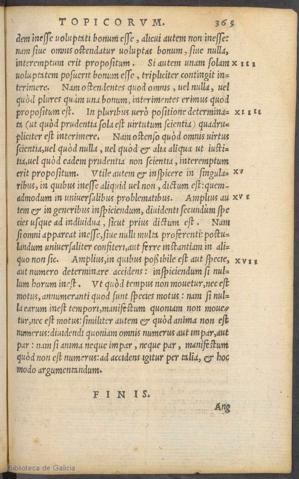 TOPICORVM. 365
dem inesse voluptati bonum esse, alicui autem non inesse:
nam siue omnis ostendatur voluptas bonum, siue nulla,
interemptum erit propositum. Si autem unam solam XIII
voluptatem posuerit bonum esse, tripliciter contingit in-
terimere. Nam ostendentes quod omnis, uel nulla, uel
quòd plures quàm una bonum, interimentes erimus quod
propositum est. In pluribus verò positione determina- XIIII
ta (ut quòd prudentia sola est uirtutum scientia) quadru-
pliciter est interimere. Nam ostenso quòd omnis uirtus
scientia, uel quòd nulla, uel quòd & alia aliqua ut iusti-
tia, uel quòd eadem prudentia non scientia, interemptum
erit propositum. Vtile autem & inspicere in singula- XV
ribus, in quibus inesse aliquid uel non, dictum est: quem-
admodum in uniuersalibus problematibus. Amplius au XVI
tem & in generibus inspiciendum, diuidenti secundum spe
cies usque ad indiuidua, sicut prius dictum est. Nam
si omni appareat inesse, siue nulli multa proferenti: postu-
landum uniuersaliter confiteri, aut ferre instantiam in ali-
quo non sic. Amplius, in quibus possibile est aut specie, XVII
aut numero determinare accidens: inspiciendum si nul-
lum horum inest. Vt quòd tempus non mouetur, nec est
motus, annumeranti quod sunt species motus: nam si nul-
la earum inest tempori, manifestum quoniam non moue-
tur, nec est motus: similiter autem & quòd anima non est
numerus: diuidendi quoniam omnis numerus aut impar, aut
par: nam si anima neque impar, neque par, manifestum
quòd non est numerus: ad accidens igitur per talia, & hoc
modo argumentandum.
FINIS.
Ang
Biblioteca de Galicia